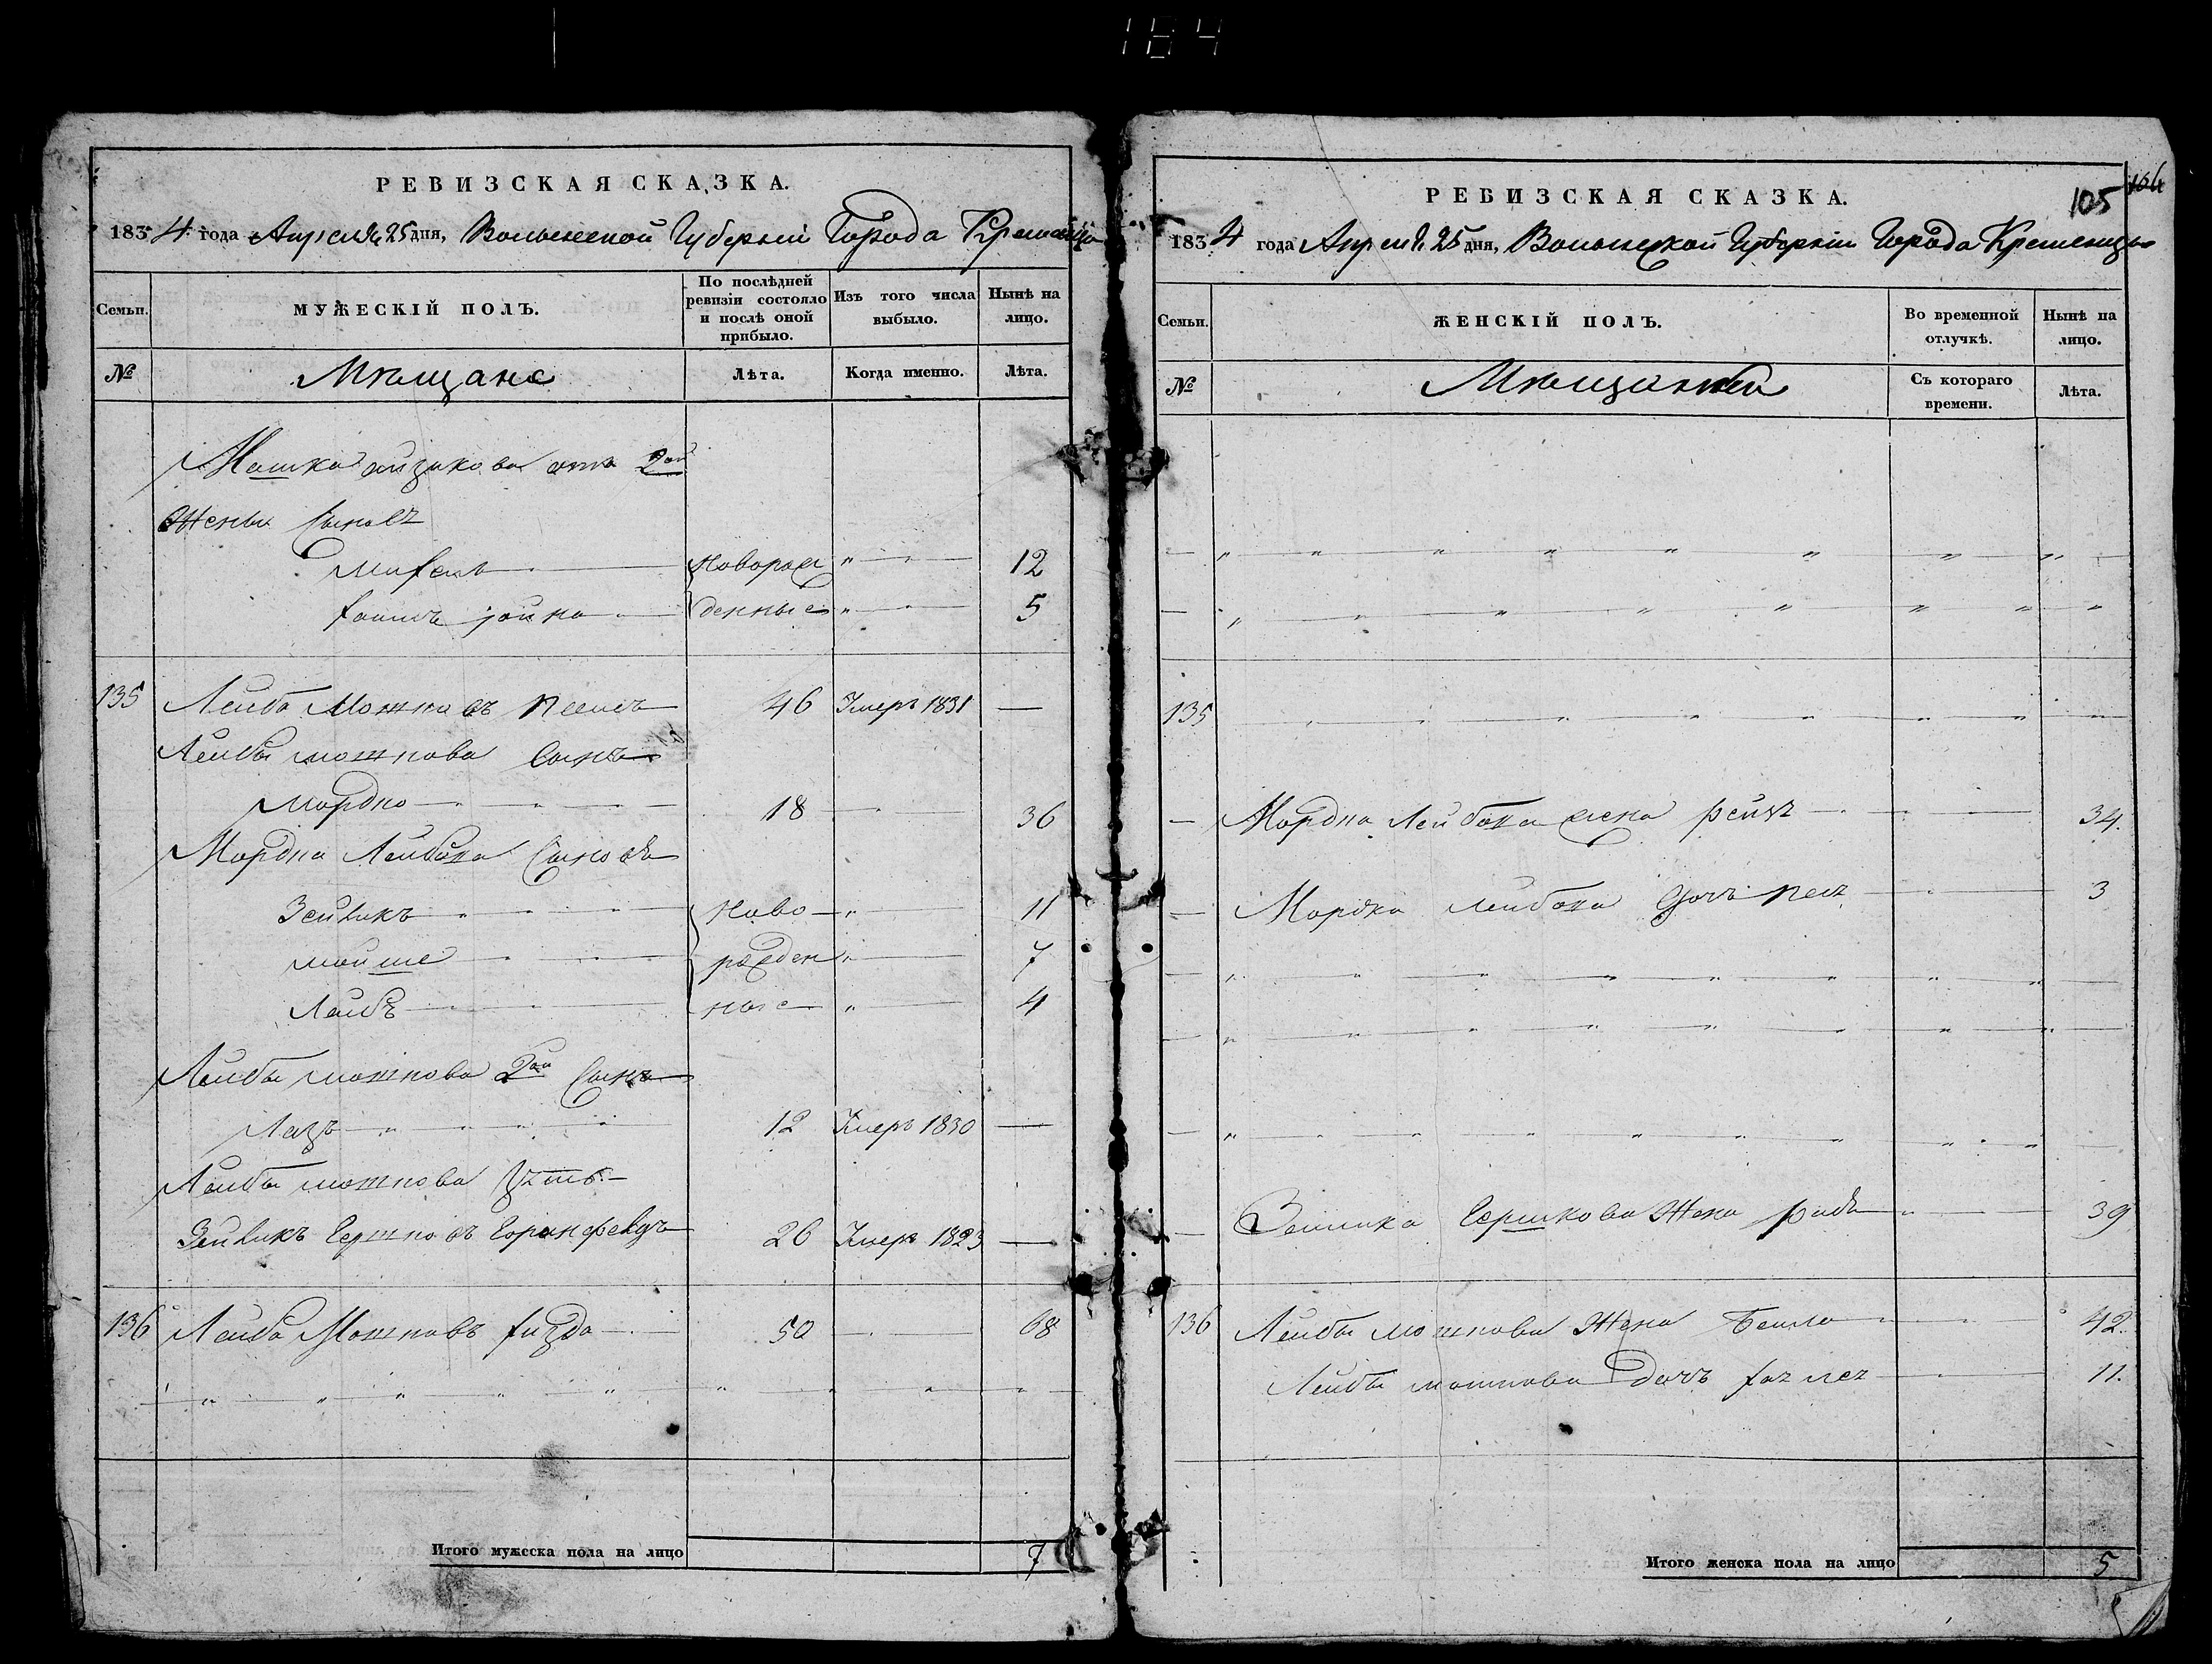 184
РЕВИЗСКАЯ СКАЗКА.
1834 года Апреля 25 дня, Волынской Губерніи Города Кременца
Семьи. МУЖЕСКІЙ ПОЛЪ. По послѣдней ревизіи состояло и послѣ оной прибыло. Изъ того числа выбыло. Нынѣ на лицо.
№ Мѣщане Лѣта. Когда именно. Лѣта.
Мошка айзикова отъ 2ой
Жены Сыновъ
Новорож " 12
денные " 5
135 Лейба Мошковъ 46 Умеръ 1831 —
Лейбы мошкова Сынъ
Мордко 18 — 36
Мордка Лейбова Сыновья
Зейликъ Ново " 11
мойше рожден " 7
Лейбъ ные " 4
Лейбы мошкова 2ой Сынъ
Лазъ 12 Умеръ 1830 —
Лейбы мошкова Зять
Зейликъ Гершковъ 26 Умеръ 1823 —
136 Лейба Мошковъ 50 — 68
Итого мужеска пола на лицо 7
105
РЕВИЗСКАЯ СКАЗКА.
1834 года Апреля 25 дня, Волынской Губерніи Города Кременца
Семьи. ЖЕНСКІЙ ПОЛЪ. Во временной отлучкѣ. Нынѣ на лицо.
№ Мѣщанки Съ котораго времени. Лѣта.
135
Мордка Лейбова жена рейзъ 34.
Мордка лейбова Дочъ 3
Зейлика Гершкова Жена 39
136 Лейбы мошкова Жена Бейла 42.
Лейбы мошкова Дочъ 11.
Итого женска пола на лицо 5